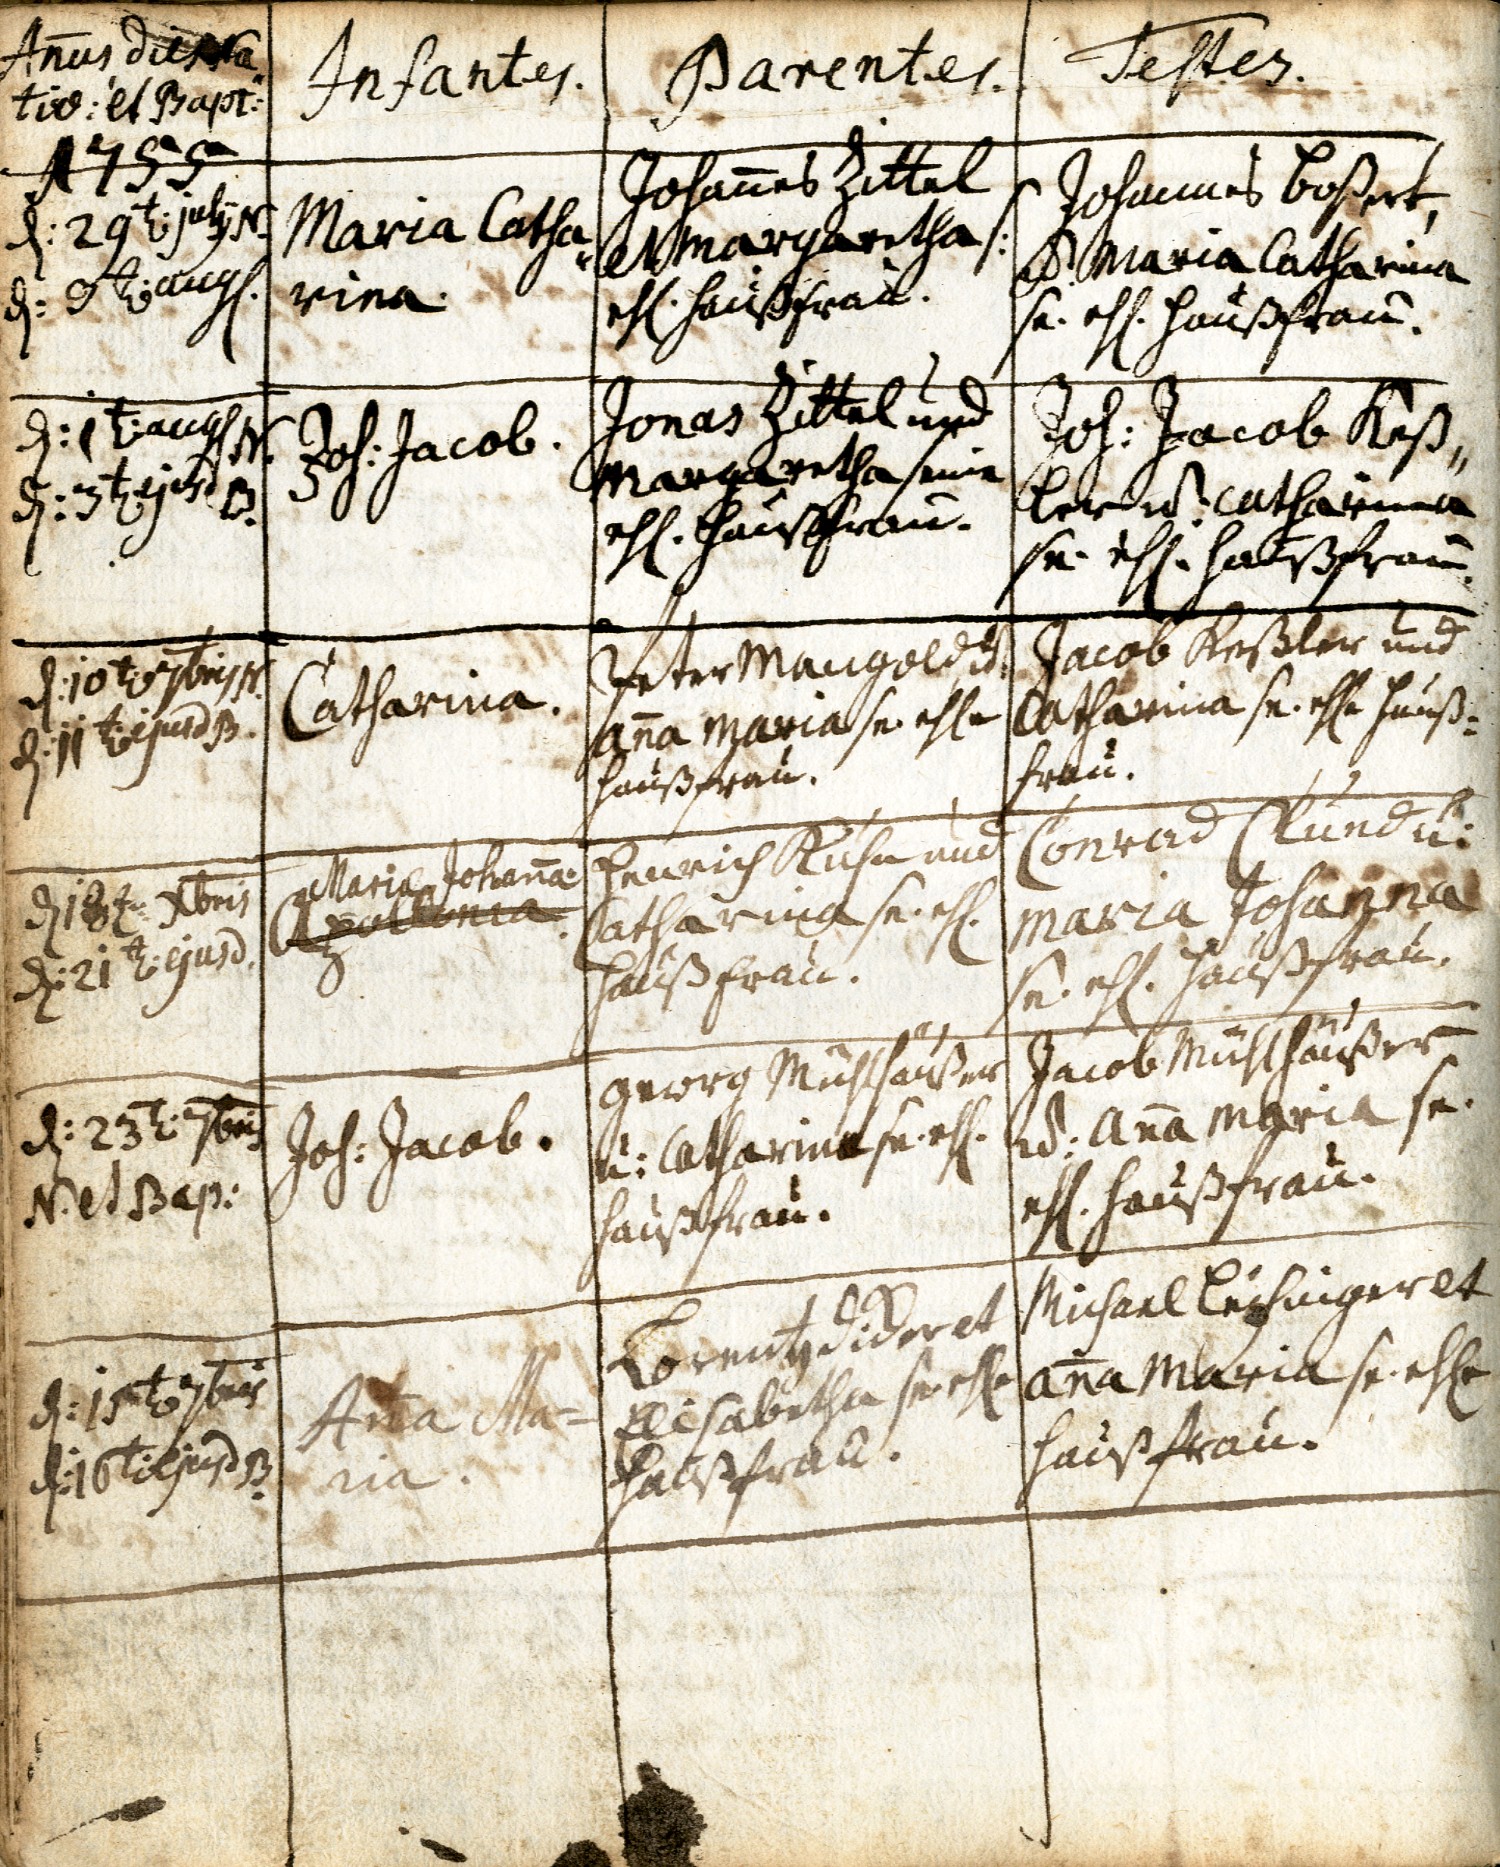 Añus dies Na
tiv: et Bapt:
Infantes.
Parentes.
Testes.
1755
d: 29t. july N.
d: 3t. aug.
Maria Catha„
rina.
Johañes Zittel
et Margaretha s:
ehl. haußfrau.
Johannes Boßert,
u. Maria Catharina
se. ehl. haußfrau.
d: 1t. aug. N.
d: 3t. ejusd B.
Joh: Jacob.
Jonas Zittel und
Margaretha seine
ehl. haußfrau.
Joh: Jacob Keß„
ler u: Catharina
se. ehl. haußfrau.
d: 10t. 7bris N.
d: 11t. ejusd B.
Catharina.
Peter Mangold u:
Aña Maria se. ehle
haußfrau.
Jacob Keßler und
Catharina se. ehle hauß=
frau.
d 18t. Xbris
d: 21t. ejusd.
Maria Johaña
Apollonia.
Henrich Kuhn und
Catharina se. ehl.
haußfrau.
Conrad Clund u:
Maria Johanna
se. ehl. haußfrau.
d: 23t. 7bris
N. et Bap:
Joh: Jacob.
Georg Mühlhäußer
u: Catharina se. ehl.
haußfrau.
Jacob Mühlhäußer
u: Aña Maria se.
ehl. haußfrau.
d: 15t. 7bris
d: 16t. ejusd B.
Aña Ma=
ria.
Lorentz Dider et
Elisabetha se. ehle
haußfrau.
Michael et
Aña Maria se. ehle
haußfrau.